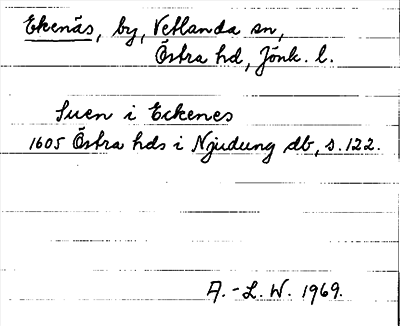 Ekenäs, by, Vetlanda sn,
Östra hd, Jönk. l.
Suen i Eckenes
1605 Östra hds i Njudung db, s. 122.
A.-L. W. 1969.